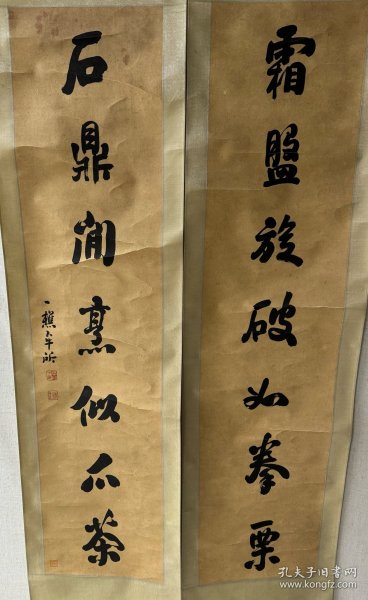 霜盤旋破如拳栗
石鼎閒烹似爪茶
一樵
孔夫子旧书网
www.kongfz.com